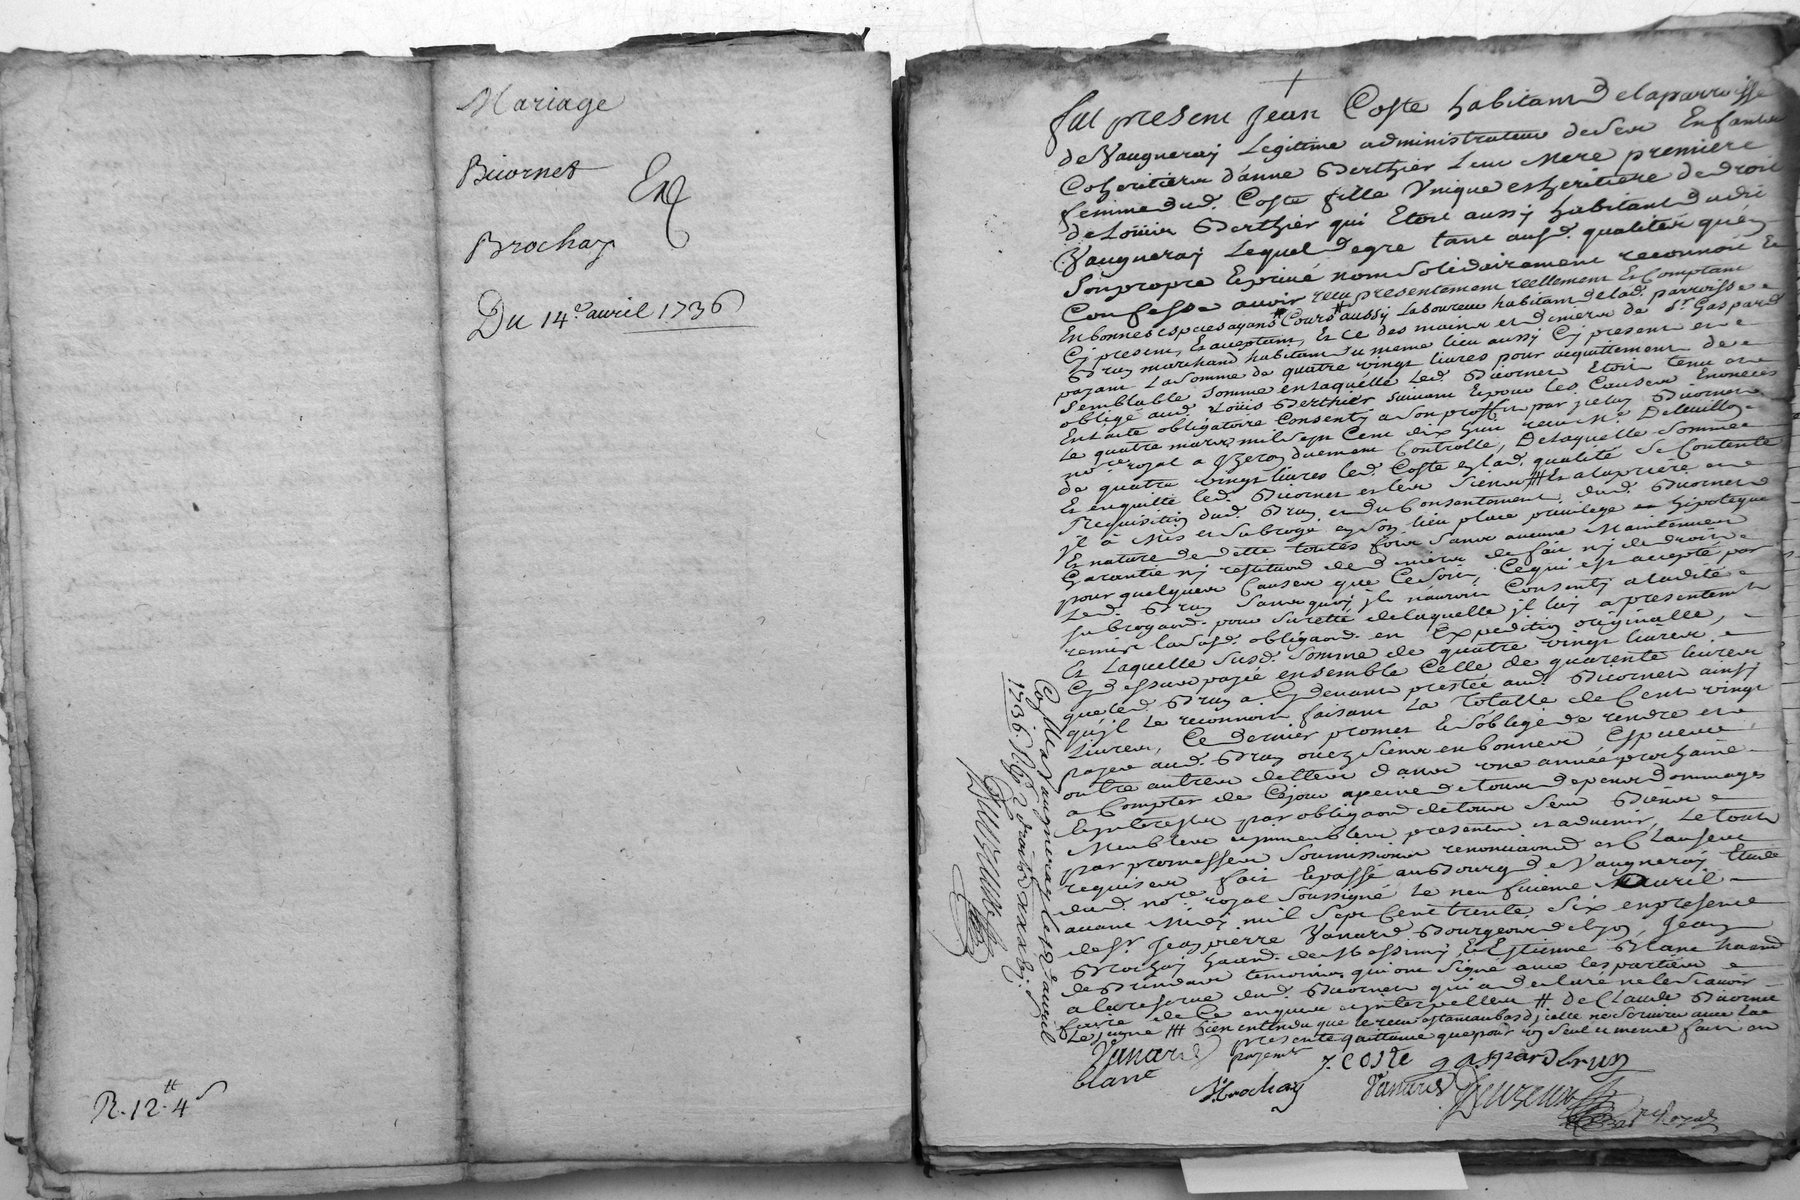 Mariage
Biiornet
Et
Brochay
Du 14.e avril 1736
R. 12 ₶ 4 s
fut present Jean Coste habitant de la parroisse
de Vaugneray Legitime administrateur de ses Enfants
Coheritiers d'anne Berthier Leur Mere premiere
femme dud. Coste fille Unique et heritiere de droit
de Loüis Berthier qui Etoit aussy habitant dudit
Vaugneray Lequel de gre tant ausd. qualités qu'en
Son propre Eprivé nom solidairement reconnoit Et
Confesse avoir receu presentement reellement Et Comptant
En bonnes especes ayant Cours # aussy Laboureur habitant de lad. parroisse
Cy present, Et acceptant, Et Ce des mains et deniers de Sr. Gaspard
Brun marchand habitant du meme lieu aussy Cy present et
payant La Somme de quatre vingt livres pour acquittement de
Semblable Somme en laquelle Led. Biiornet Etoit tenu et
obligé aud. Loüis Berthier suivant Epour les Causes Enoncées
En l'acte obligatoire Consenty a Son proffit par jceluy Biiornet
Le quatre mars mil Sept Cent dix huit receu Me. Deleuillon
nore royal a Yzeron duement Controllé, De laquelle Somme
de quatre vingt livres led. Coste en lad. qualité Se Contente
Et en quitte led. Biiornet et les Siens ## Et a la priere et
Requisition dud. Brun et du Consentement dud. Biiornet
jl à Mis et Subrogé en Son lieu place privilege et hipoteque
Et nature de dette toutes fois Sans aucune Maintenue
Garantie ny restitution de deniers de fait ny de droit
pour quelques Causes que Ce Soit, Ce qui est accepté par
Led. Brun Sans quoy jl n'auroit Consenty a ladite
Subrogaon. pour Sureté de laquelle jl luy a presentement
remis la Susd. obligaon. en Expedition originalle,
Et Laquelle Susd. Somme de quatre vingt livres
Cy dessus payée ensemble Celle de quarente livres
que led. Brun a Cy devant prestée aud. Biiornet ainsy
qu'jl Le reconnoit faisant La Totalle de Cent vingt
Livres, Ce dernier promet Et S'oblige de rendre et
payer aud. Brun ou ez Siens en bonnes Especes
outre autres dettes dans une année prochaine
a Compter de Cejour a peine de tous depens dommages
Et jnterests par obligaon de tous Ses Biens
Meubles et jmmeubles presents et advenir, Le tout
par promesses Soumissions renonciaons et Clauses
requises fait Epassé au Bourg de Vaugneray Etude
dud. nore royal Soussigné Le neufuieme avril
avant Midy mil Sept Cent trente Six en presence
de Sr. Jean pierre Vanard Bourgeois de lyon, Jean
Brochay de Messimy, Et Estienne Blanc
de Brindas temoins qui ont Signé avec les parties
a la reserve dud. Biiornet qui a declaré ne le Scavoir
faire de Ce enquis et jnterpellés # de Claude Biiornet
Le jeune ## bien entendu que le receu Estant au bas d'jcelle ne Servira avec La
presente quittance que pour un Seul et meme fait et
payemt
Vanard
blanc
Brochay
J. Coste
gaspard brun
Vanard
Deuzeuille
nre Royal
Collé a Vaugneray le 12 d'avril
1736. fo. 62